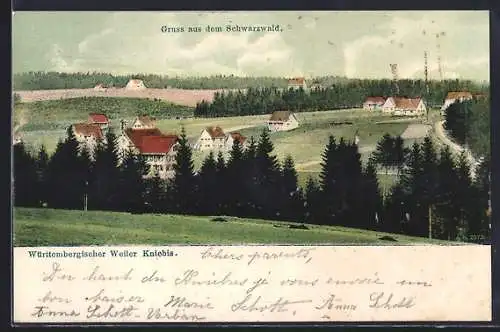 Gruss aus dem Schwarzwald.
Württembergischer Weiler Kniebis.
Chers parents,
Du haut du Kniebis je vous envoie un
bon baiser Marie Schott. Anna Schott
Anna Schott